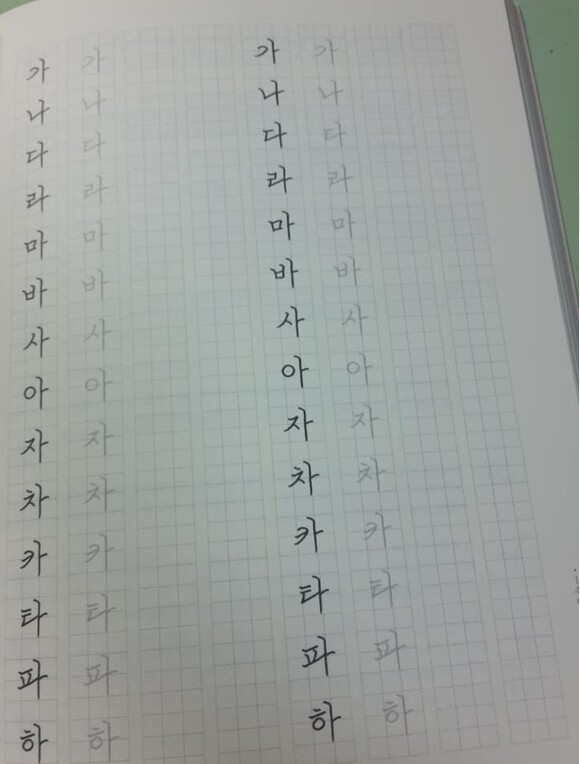 가 가 가 가
나 나 나 나
다 다 다 다
라 라 라 라
마 마 마 마
바 바 바 바
사 사 사 사
아 아 아 아
자 자 자 자
차 차 차 차
카 카 카 카
타 타 타 타
파 파 파 파
하 하 하 하